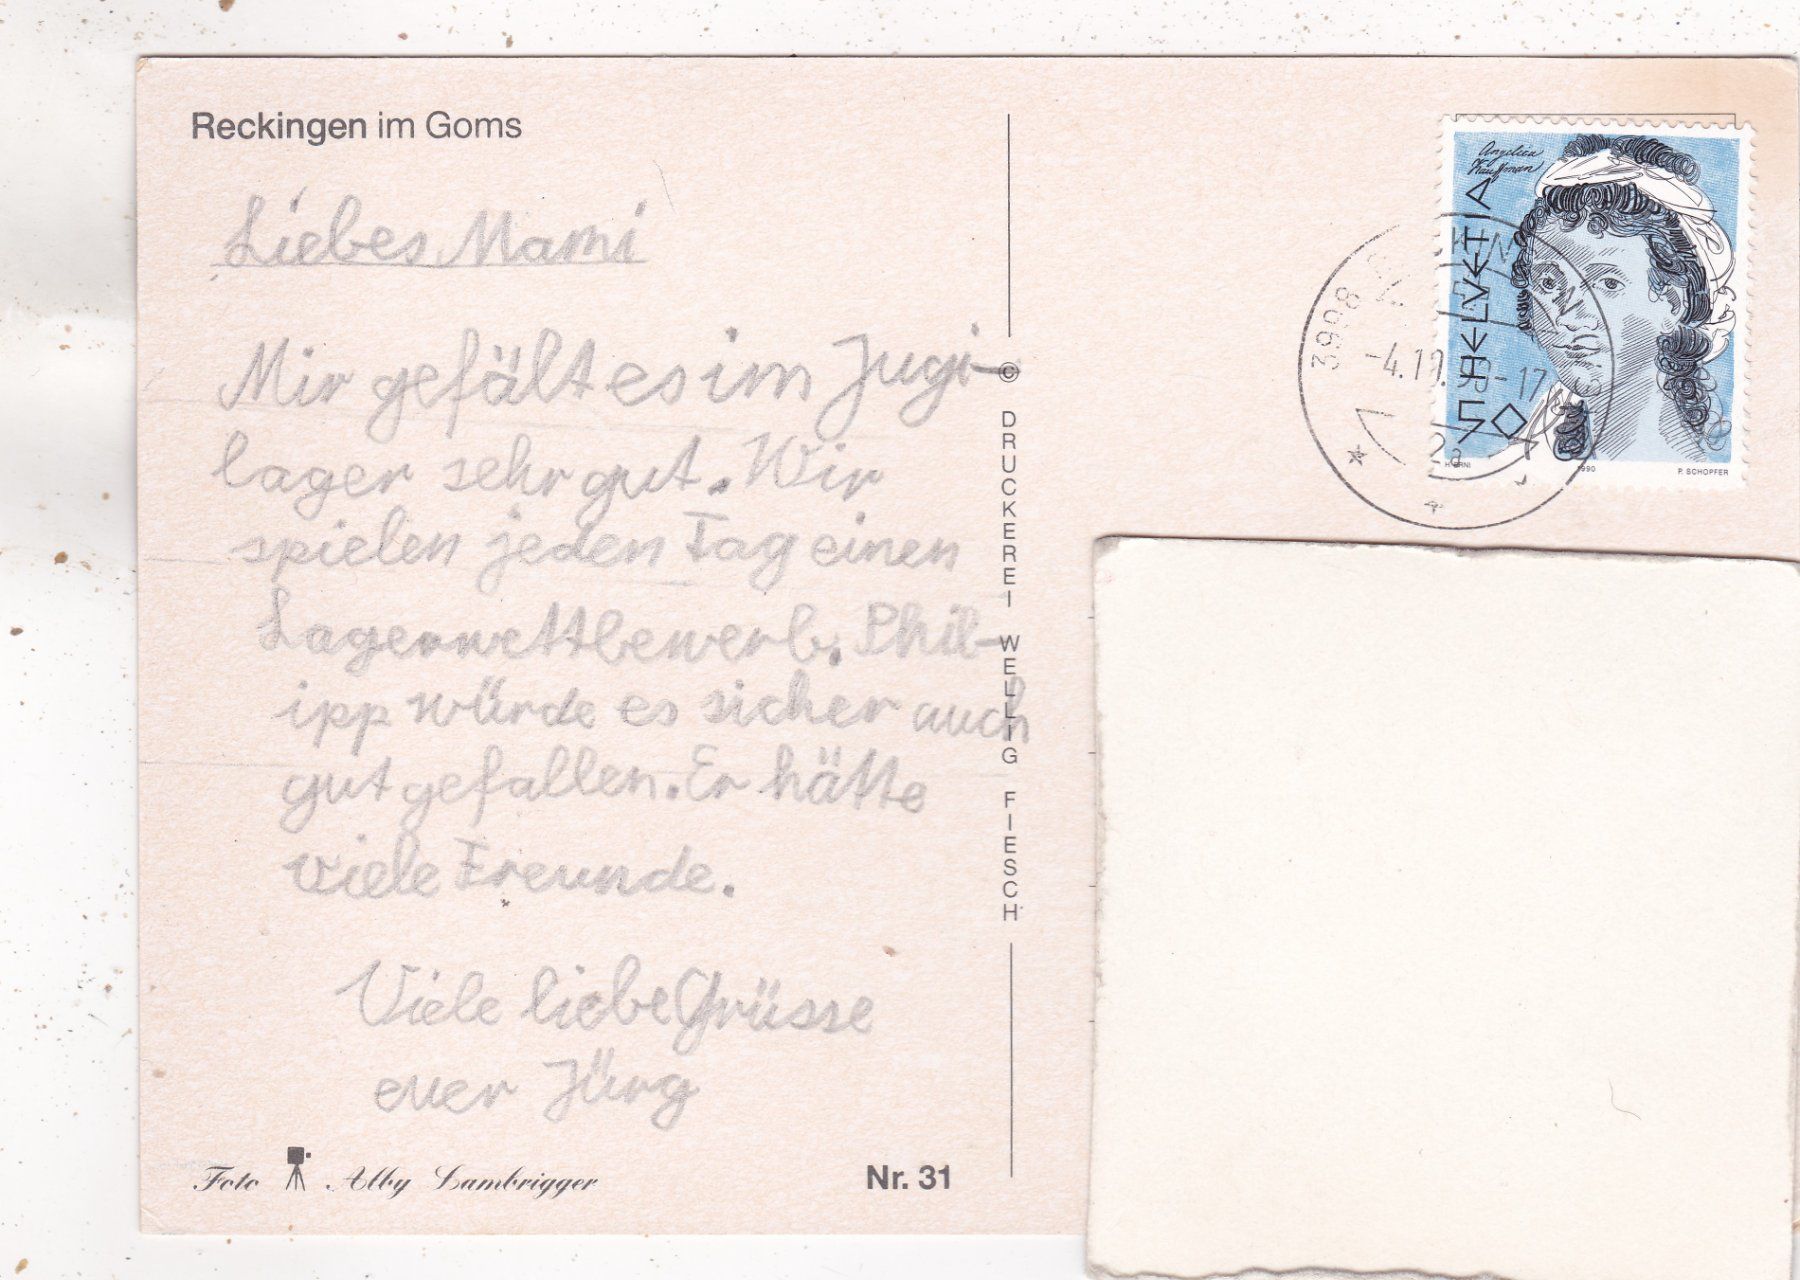 Reckingen im Goms
Liebes Mami
Mir gefält es im Jugi-
lager sehr gut. Wir
spielen jeden Tag einen
Lagerwettbewerb. Phil-
ipp würde es sicher auch
gut gefallen. Er hätte
viele Freunde.
Viele liebe Grüsse
euer Jürg
Foto Alby Lambrigger
Nr. 31
© DRUCKEREI WELLIG FIESCH
Angelica
Kauffman
HELVETIA
50
H. ERNI 1990 P. SCHOPFER
3998
-4.10. -17